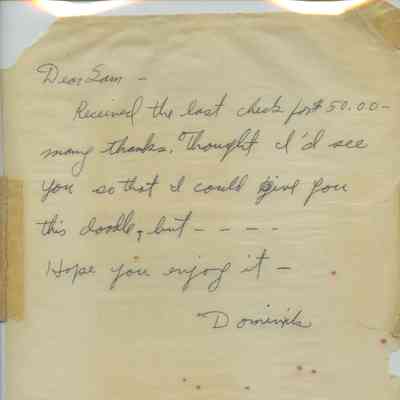 Dear Sam -
Received the last check for $50.00 -
many thanks. Thought I'd see
you so that I could give you
this doodle, but - - - -
Hope you enjoy it -
Dominick